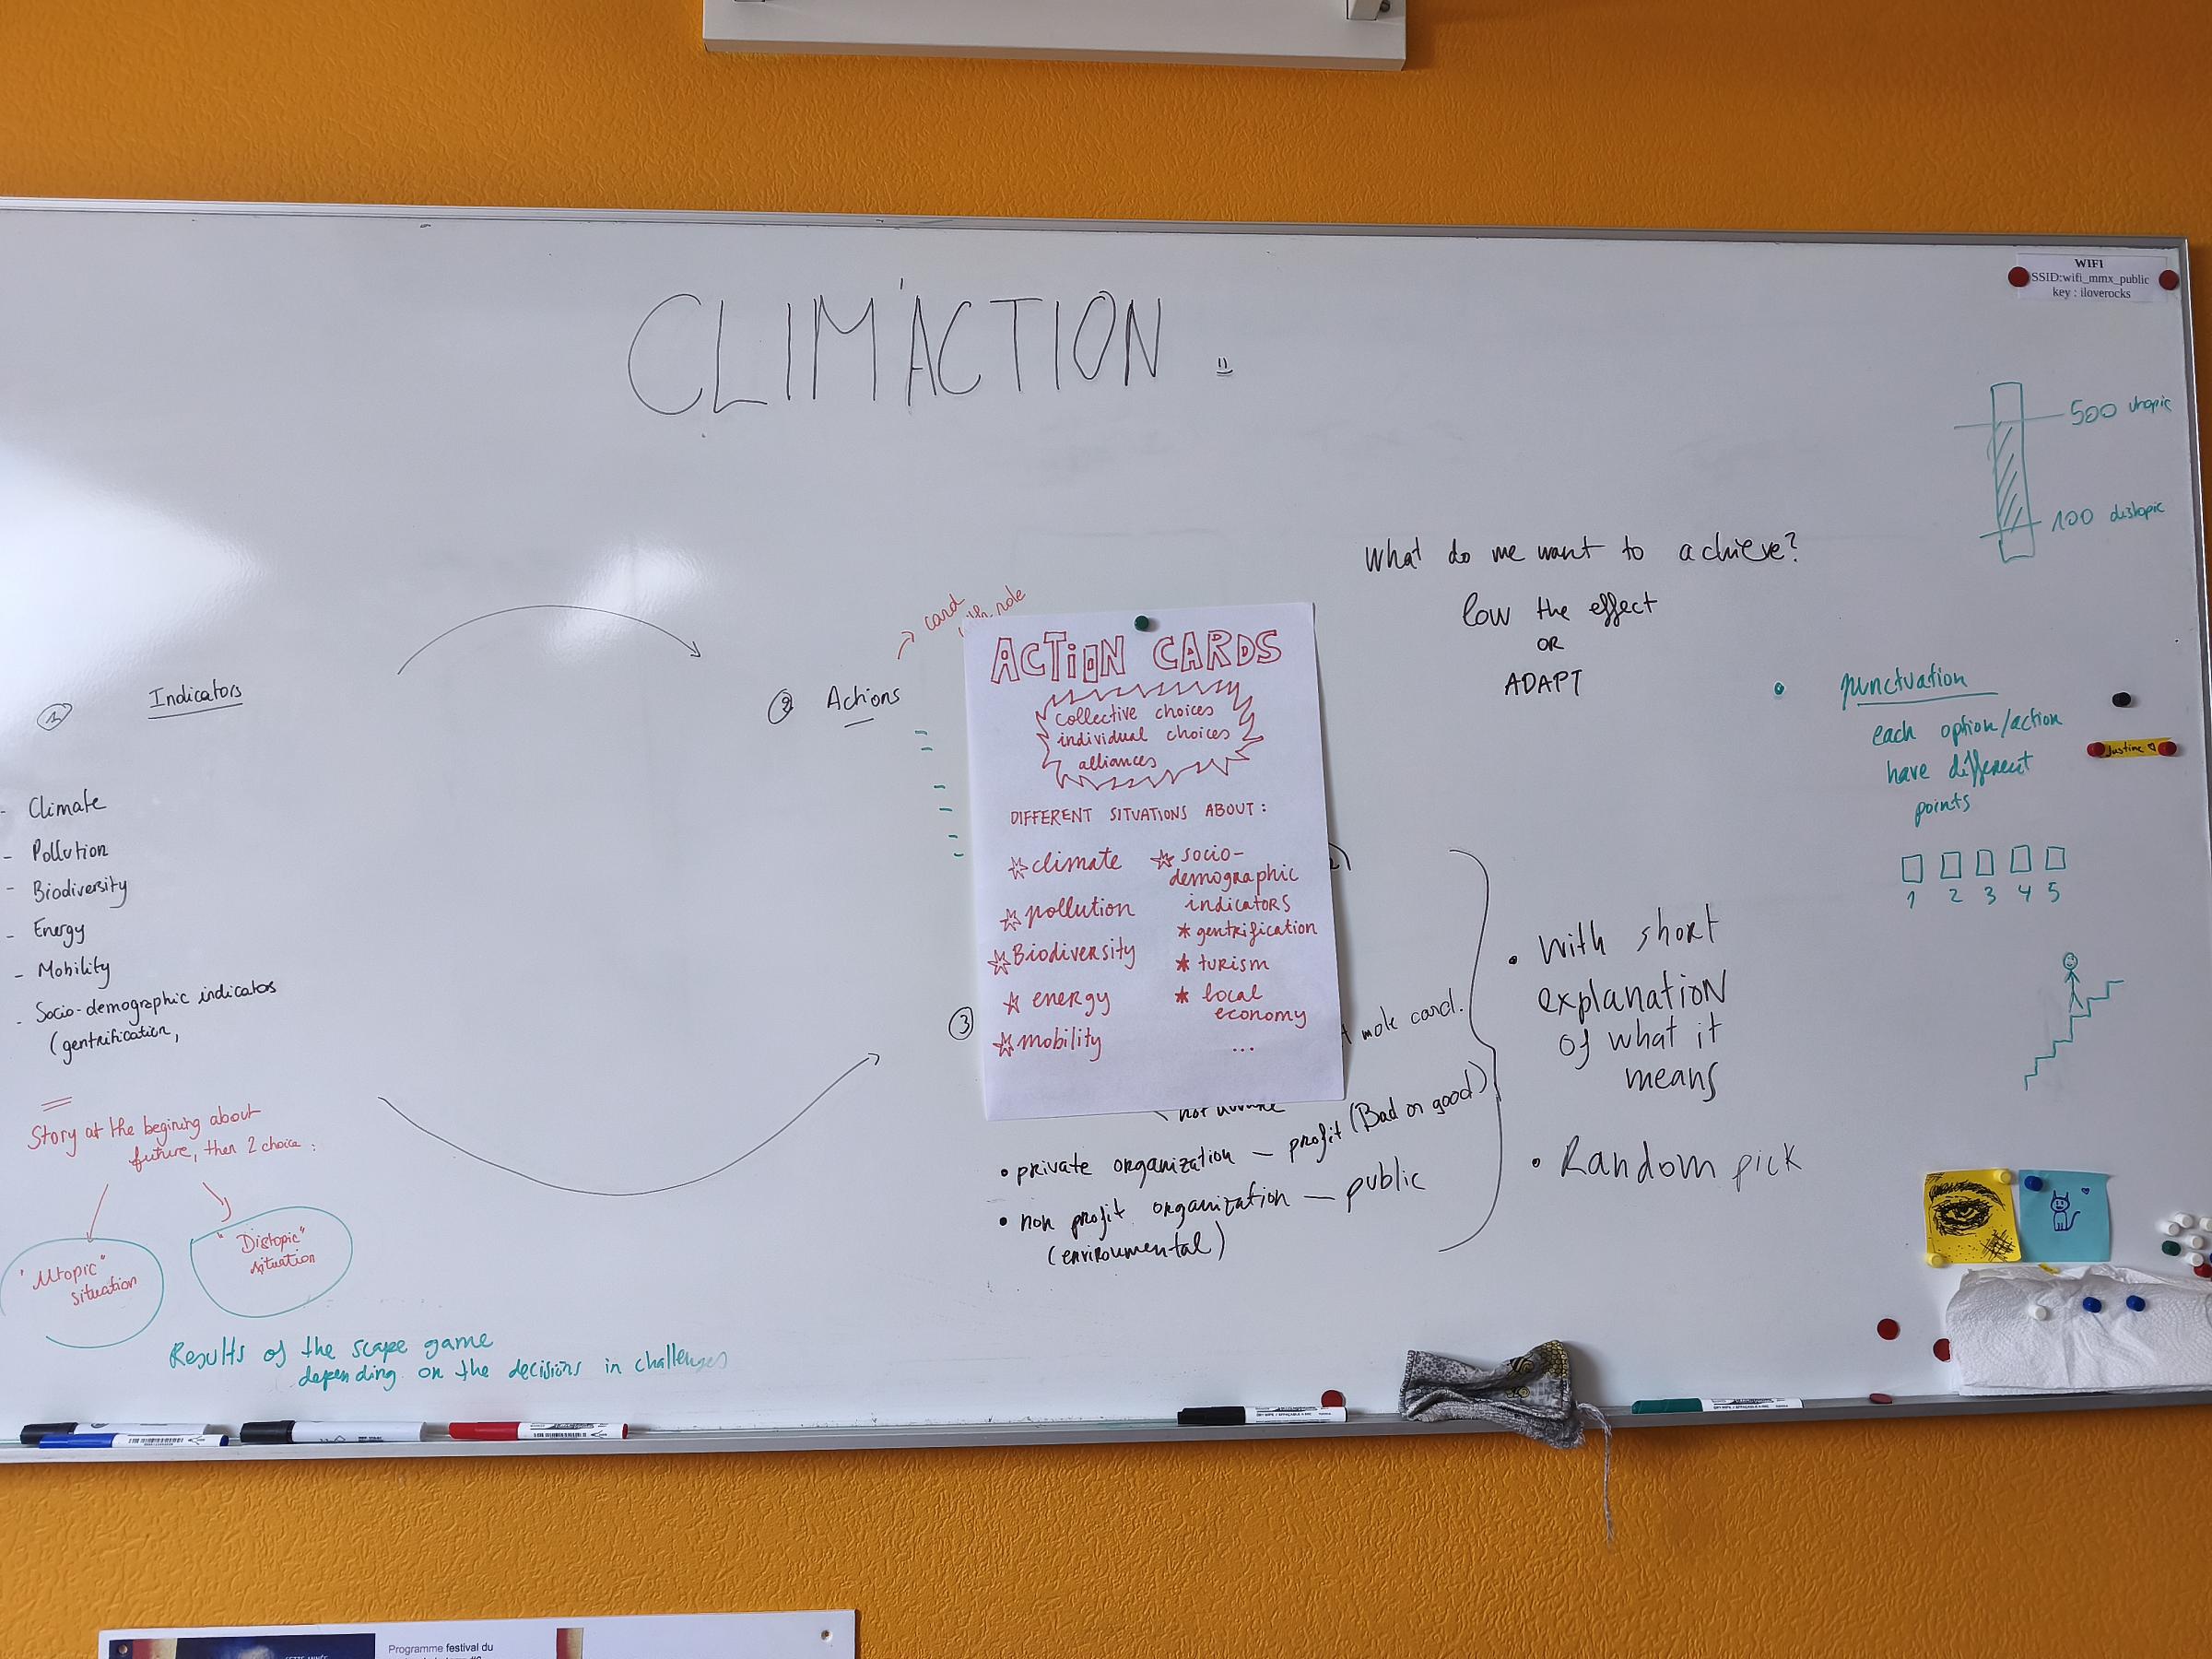 WIFI
SSID:wifi_mmx_public
key : iloverocks
CLIM'ACTION
500 utopic
100 distopic
What do we want to achieve?
low the effect
OR
ADAPT
1 Indicators
- Climate
- Pollution
- Biodiversity
- Energy
- Mobility
- Socio-demographic indicators
(gentrification,
Story at the begining about
future, then 2 choice :
"Utopic"
situation
"Distopic"
situation
Results of the scape game
depending on the decisions in challenges
2 Actions
card
role
ACTION CARDS
Collective choices
individual choices
alliances
DIFFERENT SITUATIONS ABOUT :
climate
pollution
Biodiversity
energy
mobility
socio-
demographic
indicators
* gentrification
* turism
* local
economy
...
3
card.
• private organization — profit (Bad or good)
• non profit organization — public
(environmental)
• With short
explanation
of what it
means
• Random pick
• punctuation
each option/action
have different
points
1 2 3 4 5
Justine
Programme festival du